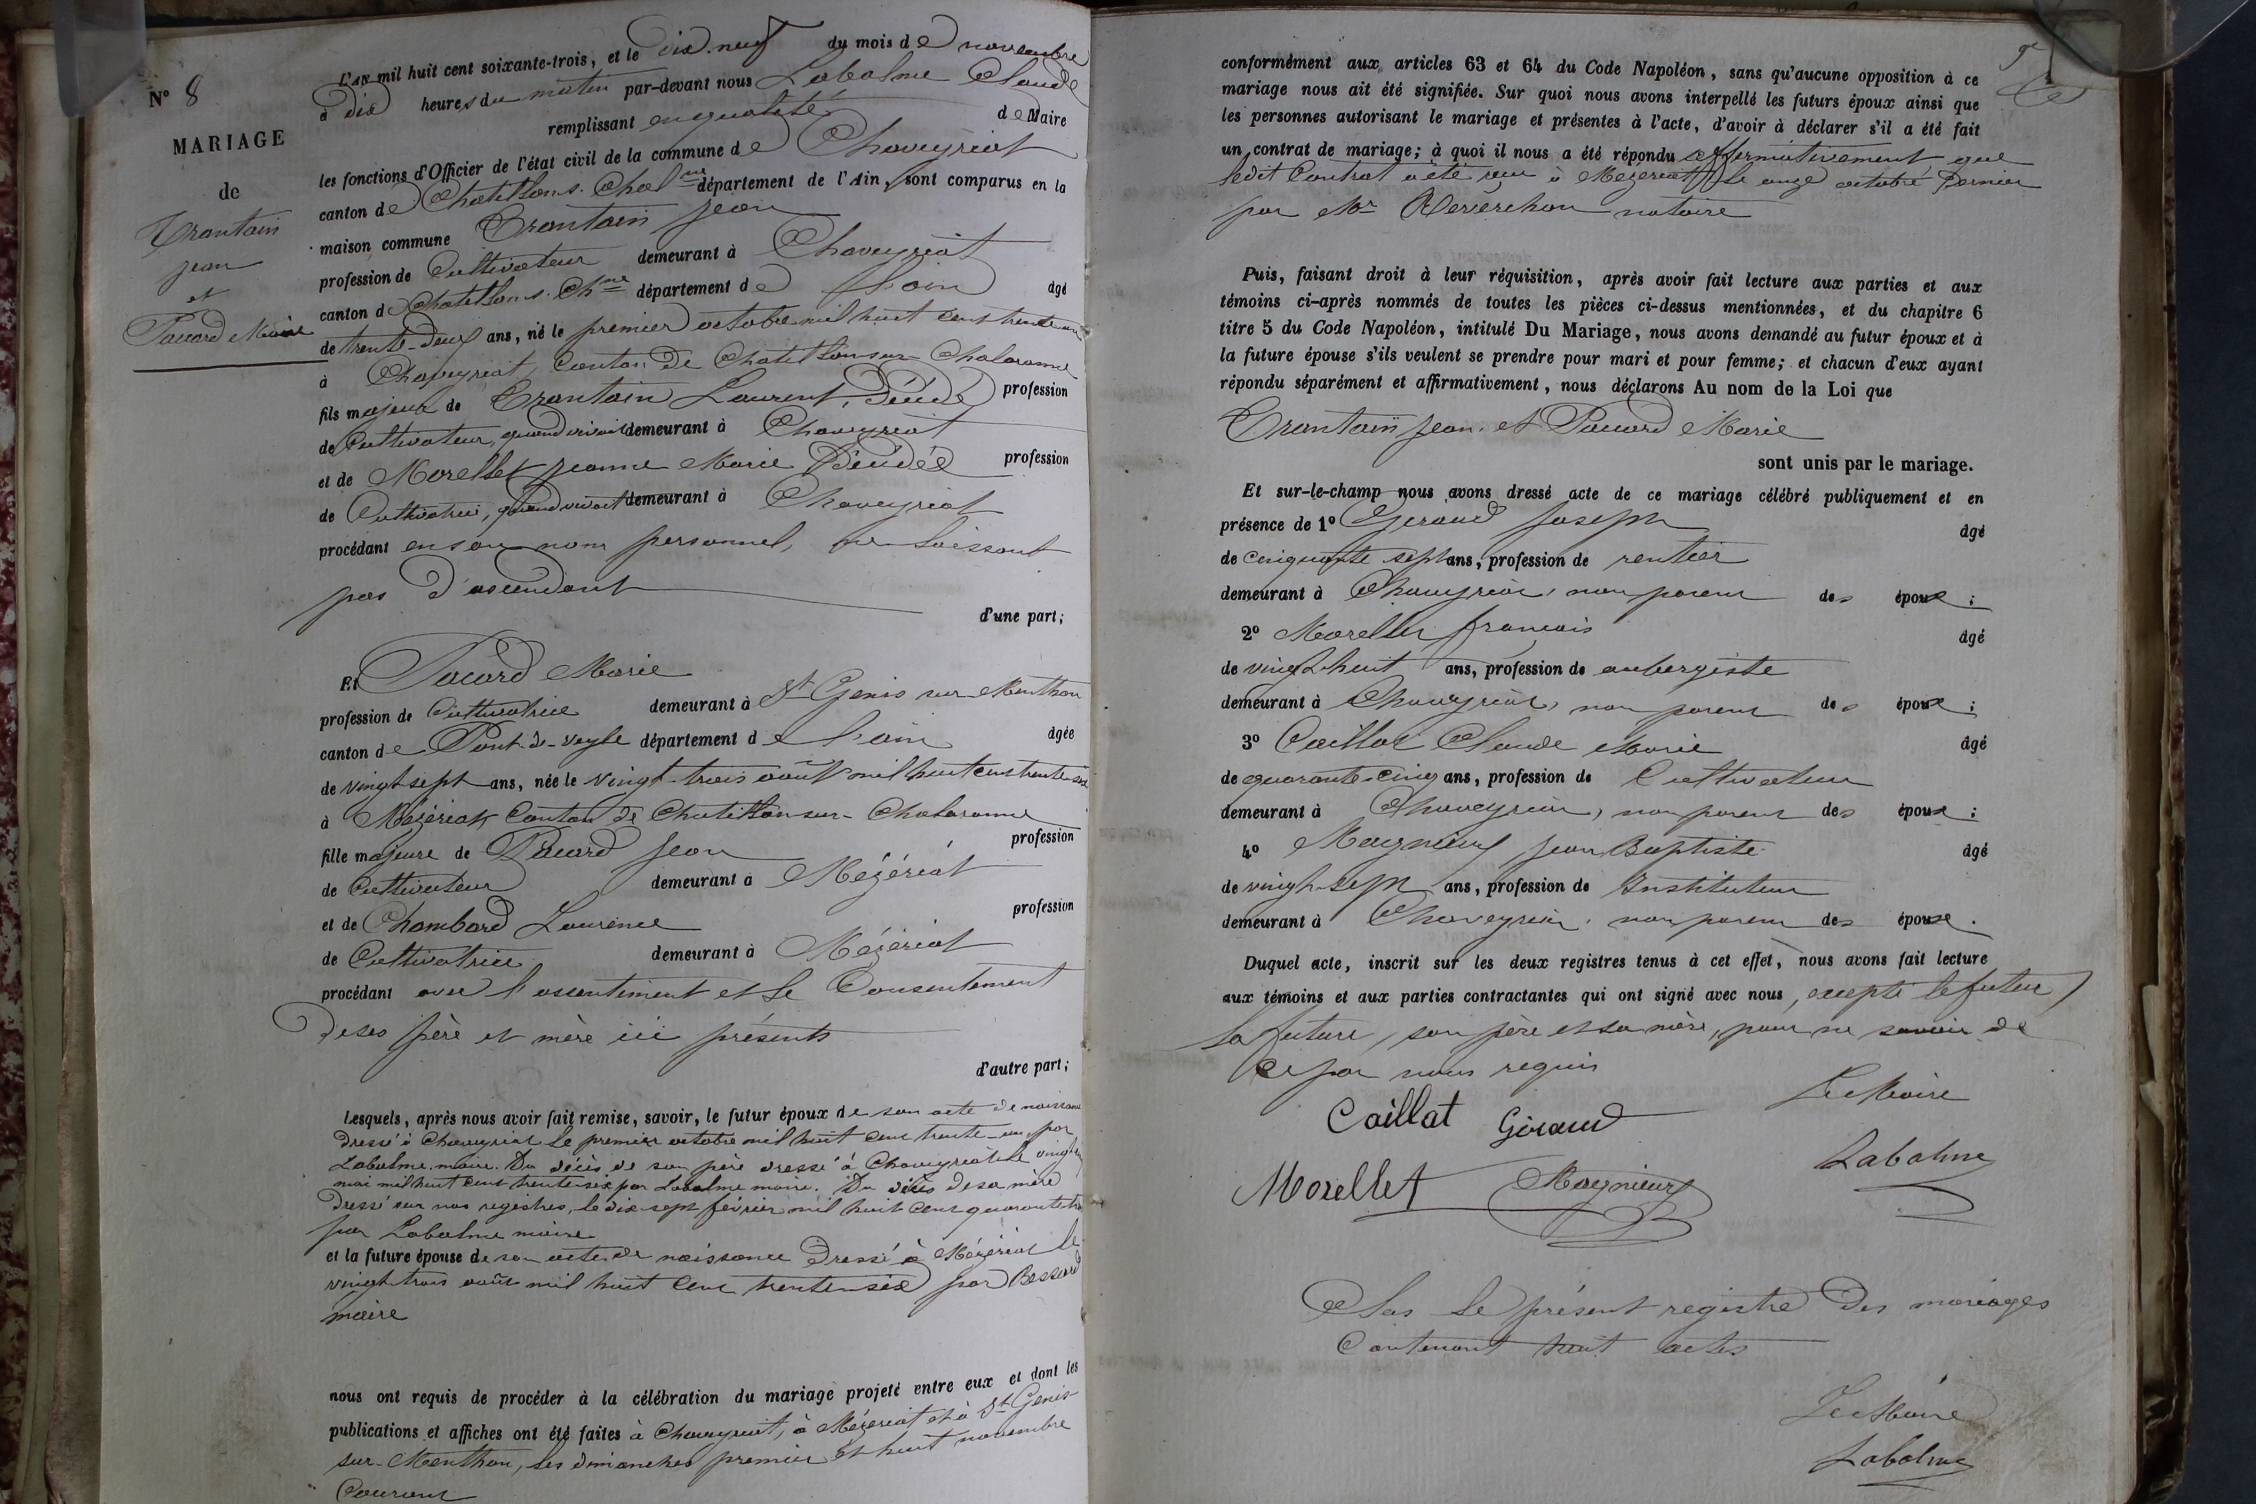 N° 8
MARIAGE
de
Trontain
Jean
et
Pacard Marie
L'AN mil huit cent soixante-trois, et le dix-neuf du mois de novembre
à dix heures du matin par-devant nous Labalme Claude
remplissant en qualité de Maire
les fonctions d'Officier de l'état civil de la commune de Chaveyriat
canton de Chatillon s. Chal.ne département de l'Ain, sont comparus en la
maison commune Trontain Jean
profession de Cultivateur demeurant à Chaveyriat
canton de Chatillon s. Ch.ne département de l'ain âgé
de trente-deux ans, né le premier octobre mil huit cent trente un
à Chaveyriat, Canton de Chatillon sur Chalaronne
fils majeur de Trontain Laurent, Décédé profession
de Cultivateur, quand vivait demeurant à Chaveyriat
et de Morellet Jeanne Marie Décédée profession
de Cultivatrice, quand vivait demeurant à Chaveyriat
procédant en son nom personnel, ne laissant
pas d'ascendant
d'une part;
Et Pacard Marie
profession de Cultivatrice demeurant à St Genis sur Menthon
canton de Pont-de-veyle département de l'ain âgée
de vingt sept ans, née le vingt-trois août mil huit cent trente six
à Mézériat Canton de Chatillon-sur-Chalaronne
fille majeure de Pacard Jean profession
de Cultivateur demeurant à Mézériat
et de Chambard Laurence profession
de Cultivatrice demeurant à Mézériat
procédant avec l'assentiment et le Consentement
de ses père et mère ici présents
d'autre part;
Lesquels, après nous avoir fait remise, savoir, le futur époux de son acte de naissance
dressé à Chaveyriat le premier octobre mil huit cent trente-un, par
Labalme, maire. Du décès de son père dressé à Chaveyriat le vingt
mai mil huit cent trente six par Labalme maire. Du décès de sa mère
dressé sur nos registres, le dix-sept février mil huit cent quarante
par Labalme maire
et la future épouse de son acte de naissance dressé à Mézériat le
vingt trois août mil huit cent trente-six par Bessard
maire
nous ont requis de procéder à la célébration du mariage projeté entre eux et dont les
publications et affiches ont été faites à Chaveyriat, à Mézeriat et à St Genis
sur-Menthon, les dimanches premier et huit novembre
Courant
conformément aux articles 63 et 64 du Code Napoléon, sans qu'aucune opposition à ce
mariage nous ait été signifiée. Sur quoi nous avons interpellé les futurs époux ainsi que
les personnes autorisant le mariage et présentes à l'acte, d'avoir à déclarer s'il a été fait
un contrat de mariage; à quoi il nous a été répondu affirmativement que
ledit Contrat a été reçu à Mezeriat le onze octobre dernier
par Mr Reverchon notaire
Puis, faisant droit à leur réquisition, après avoir fait lecture aux parties et aux
témoins ci-après nommés de toutes les pièces ci-dessus mentionnées, et du chapitre 6
titre 5 du Code Napoléon, intitulé Du Mariage, nous avons demandé au futur époux et à
la future épouse s'ils veulent se prendre pour mari et pour femme; et chacun d'eux ayant
répondu séparément et affirmativement, nous déclarons Au nom de la Loi que
Trontain Jean et Pacard Marie
sont unis par le mariage.
Et sur-le-champ nous avons dressé acte de ce mariage célébré publiquement et en
présence de 1° Geraud Joseph âgé
de cinquante sept ans, profession de rentier
demeurant à Chaveyriat, non parent des époux;
2° Morellet françois âgé
de vingt-huit ans, profession de aubergiste
demeurant à Chaveyriat, non parent des époux;
3° Caillat Claude Marie âgé
de quarante-cinq ans, profession de Cultivateur
demeurant à Chaveyriat, non parent des époux;
4° Magnieux Jean Baptiste âgé
de vingt-sept ans, profession de Instituteur
demeurant à Chaveyriat, non parent des époux.
Duquel acte, inscrit sur les deux registres tenus à cet effet, nous avons fait lecture
aux témoins et aux parties contractantes qui ont signé avec nous, excepté le futur,
la future, son père et sa mère, pour ne savoir de
ce par nous requis
Le Maire
Caillat Géraud
Labalme
Morellet Magnieux
Clos le présent registre des mariages
Contenant huit actes
Le Maire
Labalme